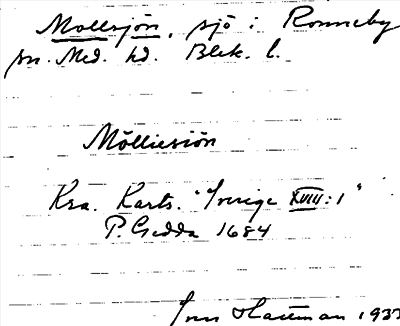 Mollsjön, sjö i Ronneby
sn. Med. hd. Blek. l.
Mölliesiön
Kra. Kart. "Sverige XVIII:1"
P. Gedda 1684
Hartman 1933